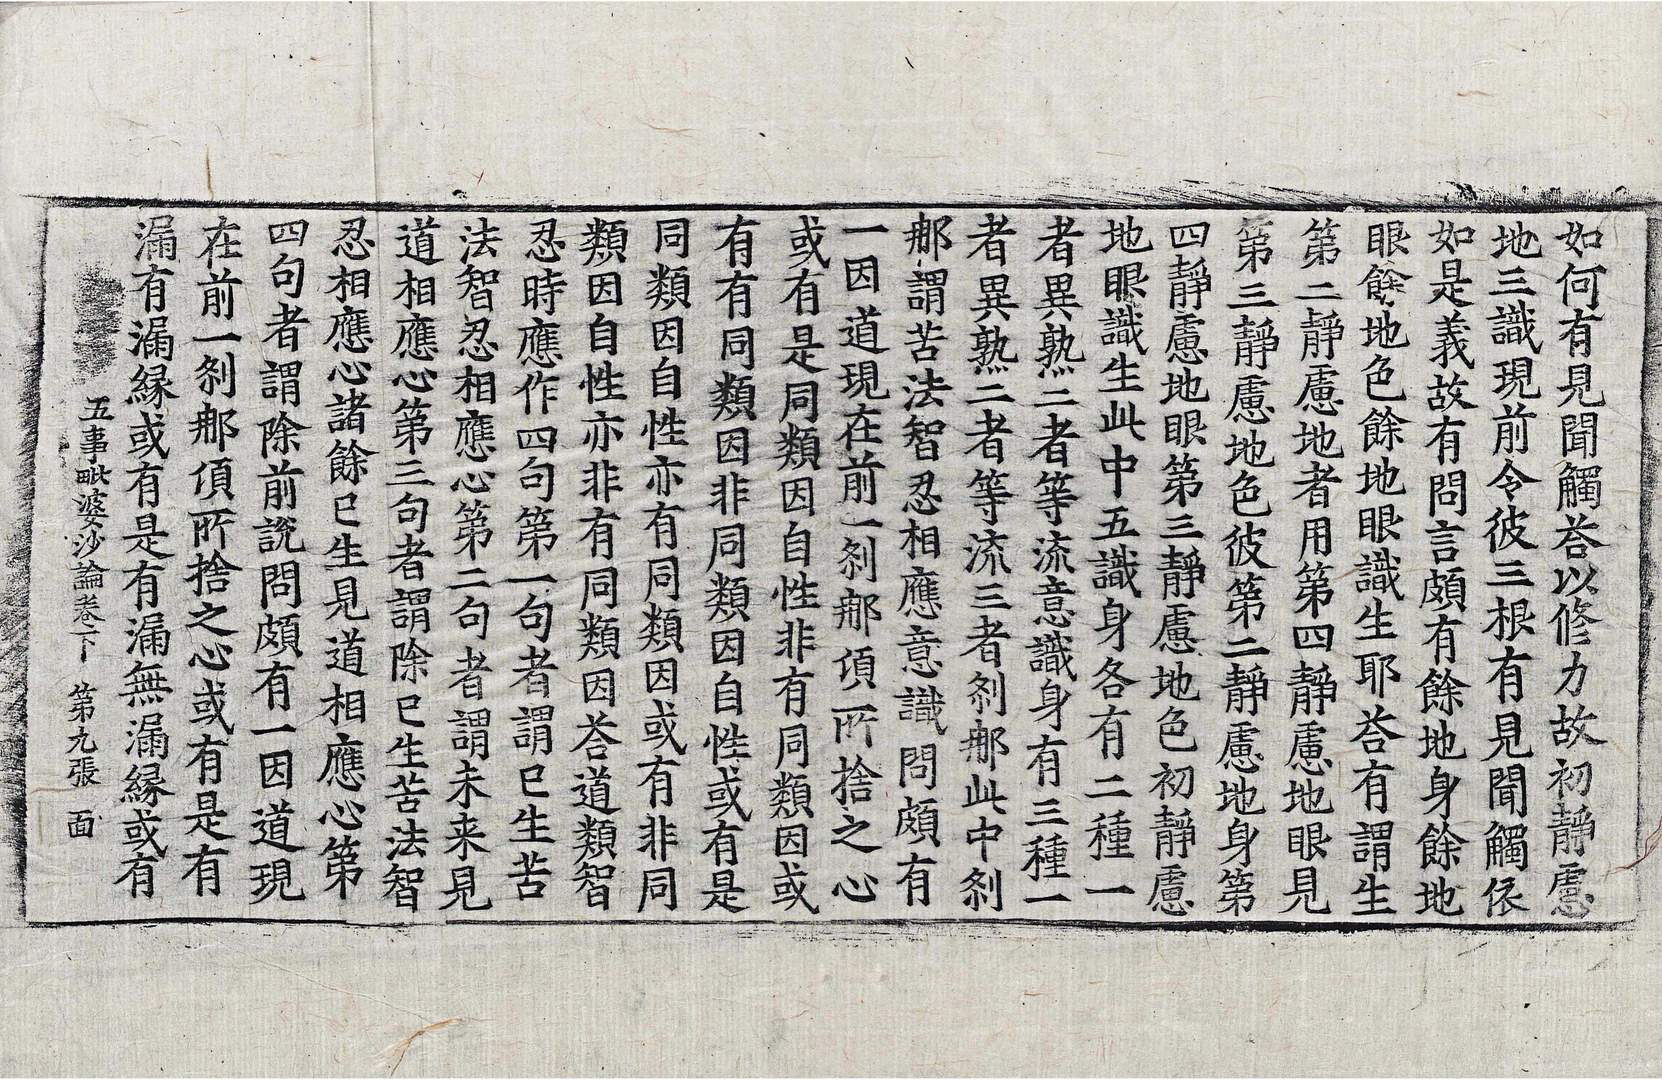 如何有見聞觸荅以修力故初靜慮
地三識現前令彼三根有見聞觸依
如是義故有問言頗有餘地身餘地
眼餘地色餘地眼識生耶荅有謂生
第二靜慮地者用第四靜慮地眼見
第三靜慮地色彼第二靜慮地身第
四靜慮地眼第三靜慮地色初靜慮
地眼識生此中五識身各有二種一
者異熟二者等流意識身有三種一
者異熟二者等流三者刹那此中刹
那謂苦法智忍相應意識問頗有
一因道現在前一刹那頃所捨之心
或有是同類因自性非有同類因或
有有同類因非同類因自性或有是
同類因自性亦有同類因或有非同
類因自性亦非有同類因荅道類智
忍時應作四句第一句者謂已生苦
法智忍相應心第二句者謂未来見
道相應心第三句者謂除已生苦法智
忍相應心諸餘已生見道相應心第
四句者謂除前說問頗有一因道現
在前一刹那頃所捨之心或有是有
漏有漏緣或有是有漏無漏緣或有
五事毗婆沙論卷下 第九張 面